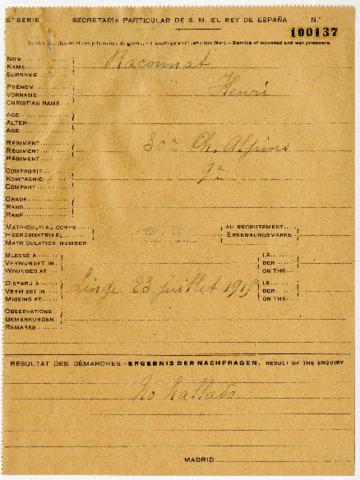 2.ª SERIE SECRETARÍA PARTICULAR DE S. M. EL REY DE ESPAÑA N.º
100137
Service of wounded and war prisoners.
NOM
NAME
SURNAME
Raconnat
PRÉNOM
VORNAME
CHRISTIAN NAME
Henri
AGE
ALTER
AGE
RÉGIMENT
REGIMENT
REGIMENT
30º Ch. Alpins
COMPAGNIE
KOMPAGNIE
COMPANY
9ª
GRADE
RANG
RANK
MATRICULE AU CORPS
HEERESMATRIKEL
MATRICULATION NUMBER
AU RECRUTEMENT
ERKENNUNGSMARKE
BLESSÉ A
VERWUNDET IN
WOUNDED AT
LE
DER
ON THE
DISPARU A
VERMISST IN
MISSING AT
Linge 23 juillet 1915
LE
DER
ON THE
OBSERVATIONS
BEMERKUNGEN
REMARKS
RÉSULTAT DES DÉMARCHES.—ERGEBNIS DER NACHFRAGEN. RESULT OF THE ENQUIRY
No hallado
MADRID